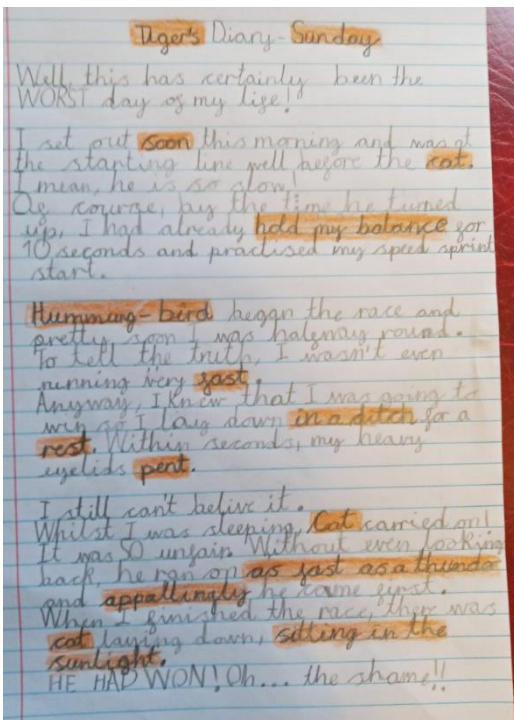 Tiger's Diary - Sunday
Well, this has certainly been the
WORST day of my life!
I set out soon this morning and was at
the starting line well before the cat.
I mean, he is so slow!
Of course, by the time he turned
up, I had already hold my balance for
10 seconds and practised my speed sprint
start.
Hummung-bird began the race and
pretty soon I was halfway round.
To tell the truth, I wasn't even
running very fast.
Anyway, I knew that I was going to
win so I lay down in a ditch for a
rest. Within seconds, my heavy
eyelids pent.
I still can't belive it.
Whilst I was sleeping, Cat carried on!
It was SO unfair. Without even looking
back, he ran on as fast as a thunder
and appallingly he came first.
When I finished the race, there was
cat laying down, sitting in the
sunlight.
HE HAD WON! Oh... the shame!!